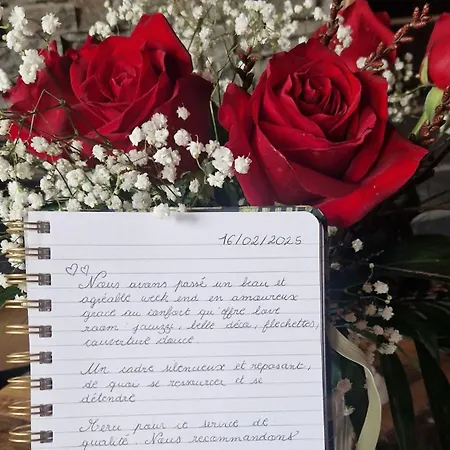 16/02/2025
Nous avons passé un beau et
agréable week end en amoureux
grace au confort qu'offre love
room : jacuzzi, belle déco, flechettes,
couverture douce.
Un cadre silencieux et reposant,
de quoi se ressourcer et se
détendre
Merci pour ce service de
qualité. Nous recommandons